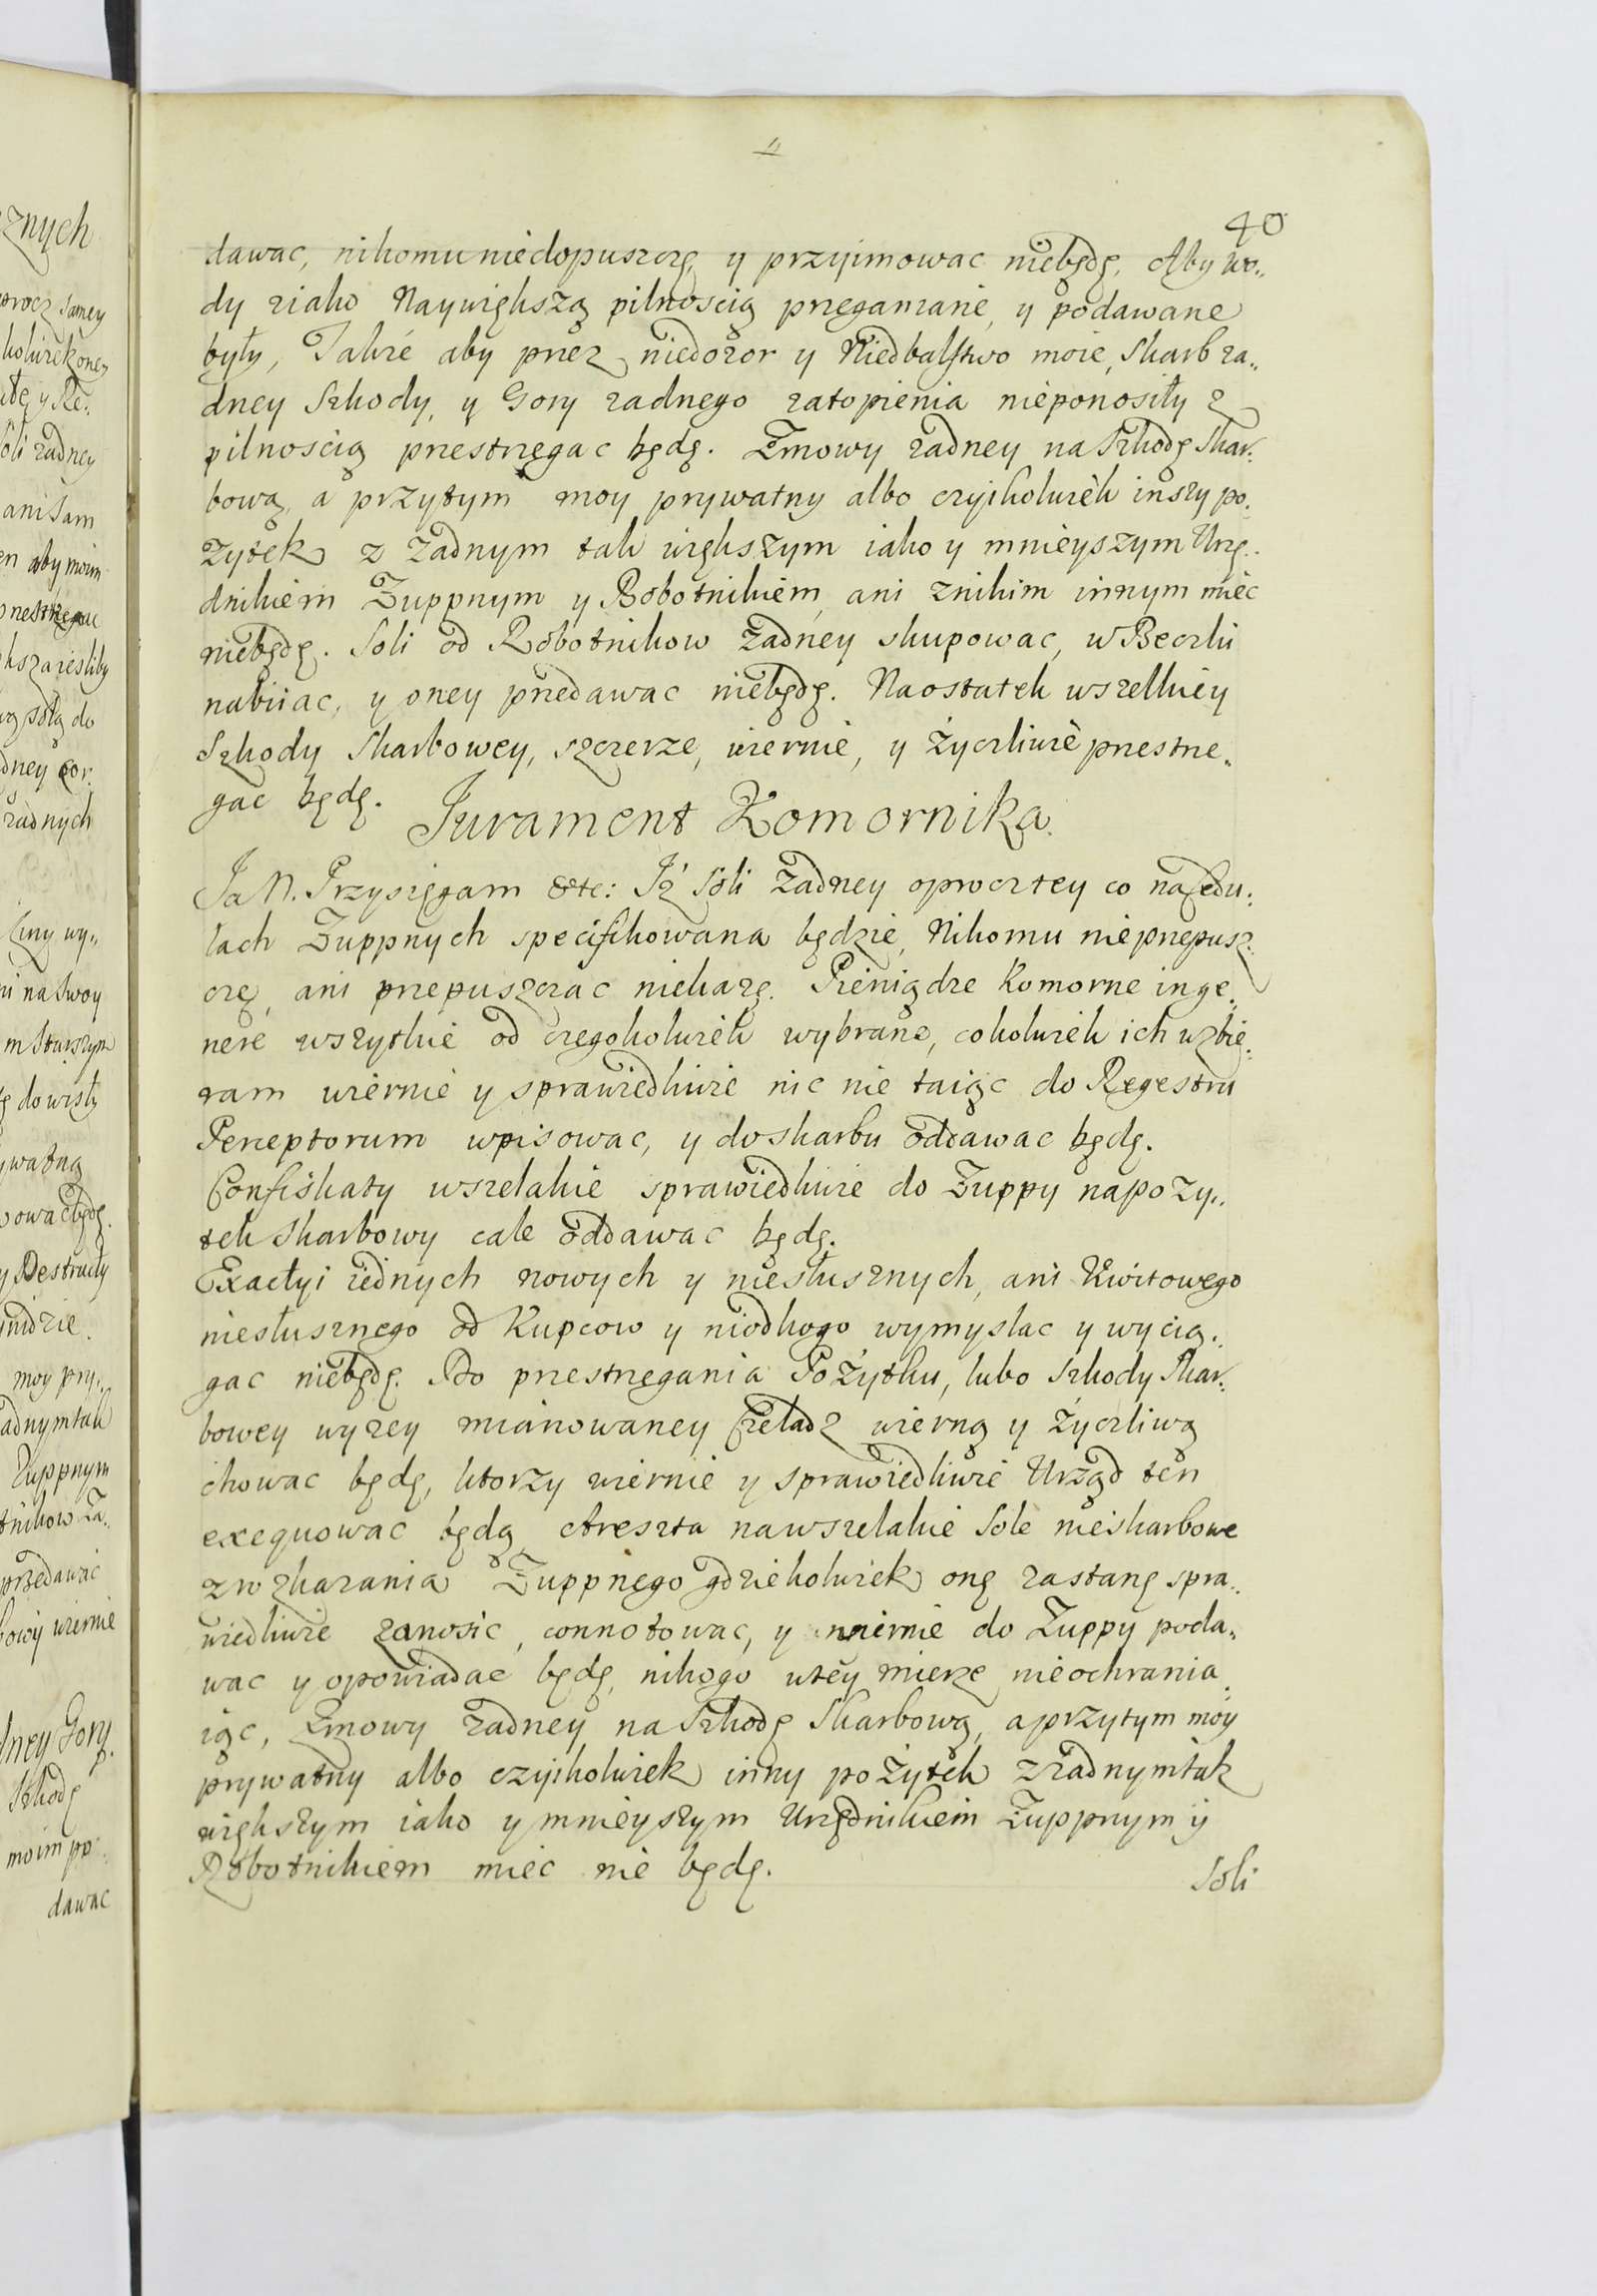 40
dawac, nikomu niedopuszczę, y przyimowac niebędę, Aby wo„
dy ziako Naywiększą pilnoscią przeganiane, y podawane
były, Takze aby przez niedozor y Niedbalstwo moie, Skarb za„
dney Szkody, y Gory zadnego zatopienia nieponosiły z
pilnoscią przestrzegac będę. Zmowy zadney na Szkodę Skar„
bową, a przytym moy prywatny albo czyikolwiek inszy po„
zytek z zadnym tak większym iako y mnieyszym Urzę„
dnikiem Zuppnym y Robotnikiem, ani znikim innym miec
niebędę. Soli od Robotnikow zadney skupowac, w Beczki
nabiiac, y oney przedawac niebędę. Naostatek wszelkiey
Szkody Skarbowey, szczerze, wiernie, y życzliwie przestrze„
gac będę.
Jurament Komornika.
Ja N. Przysięgam &tc: Iż Soli zadney oprocz tey co na Cedu„
łach Zuppnych specifikowana będzie, Nikomu nieprzepusz„
czę, ani przepuszczac niekazę. Pieniądze Komorne inge„
nere wszytkie od czegokolwiek wybrane, cokolwiek ich wzbie„
ram wiernie y sprawiedliwie nic nie taiąc do Regestru
Perceptorum wpisowac, y do skarbu oddawac będę.
Confiskaty wszelakie sprawiedliwie do Zuppy na pozy„
tek Skarbowy cale oddawac będę.
Exactyi zednych nowych y niesłusznych, ani Kwitowego
niesłusznego od Kupcow y niodkogo wymyslac y wycią„
gac niebędę. Do przestrzegania Pożytku, lubo Szkody Skar„
bowey wyzey mianowaney Czeladz wierną y życzliwą
chowac będę, ktorzy wiernie y sprawiedliwie Urząd ten
exequowac będą, Areszta nawszelakie Sole nieskarbowe
z rozkazania Zuppnego gdziekolwiek onę zastanę spra„
wiedliwie zanosic, connotowac, y wiernie do Zuppy poda„
wac y opowiadac będę, nikogo wtey mierze nieochrania„
iąc, Zmowy zadney na Szkodę Skarbową, aprzytym moy
prywatny albo czyikolwiek inny pożytek zżadnym tak
większym iako y mnieyszym Urzędnikiem Zuppnym y
Robotnikiem miec nie będę.
Soli